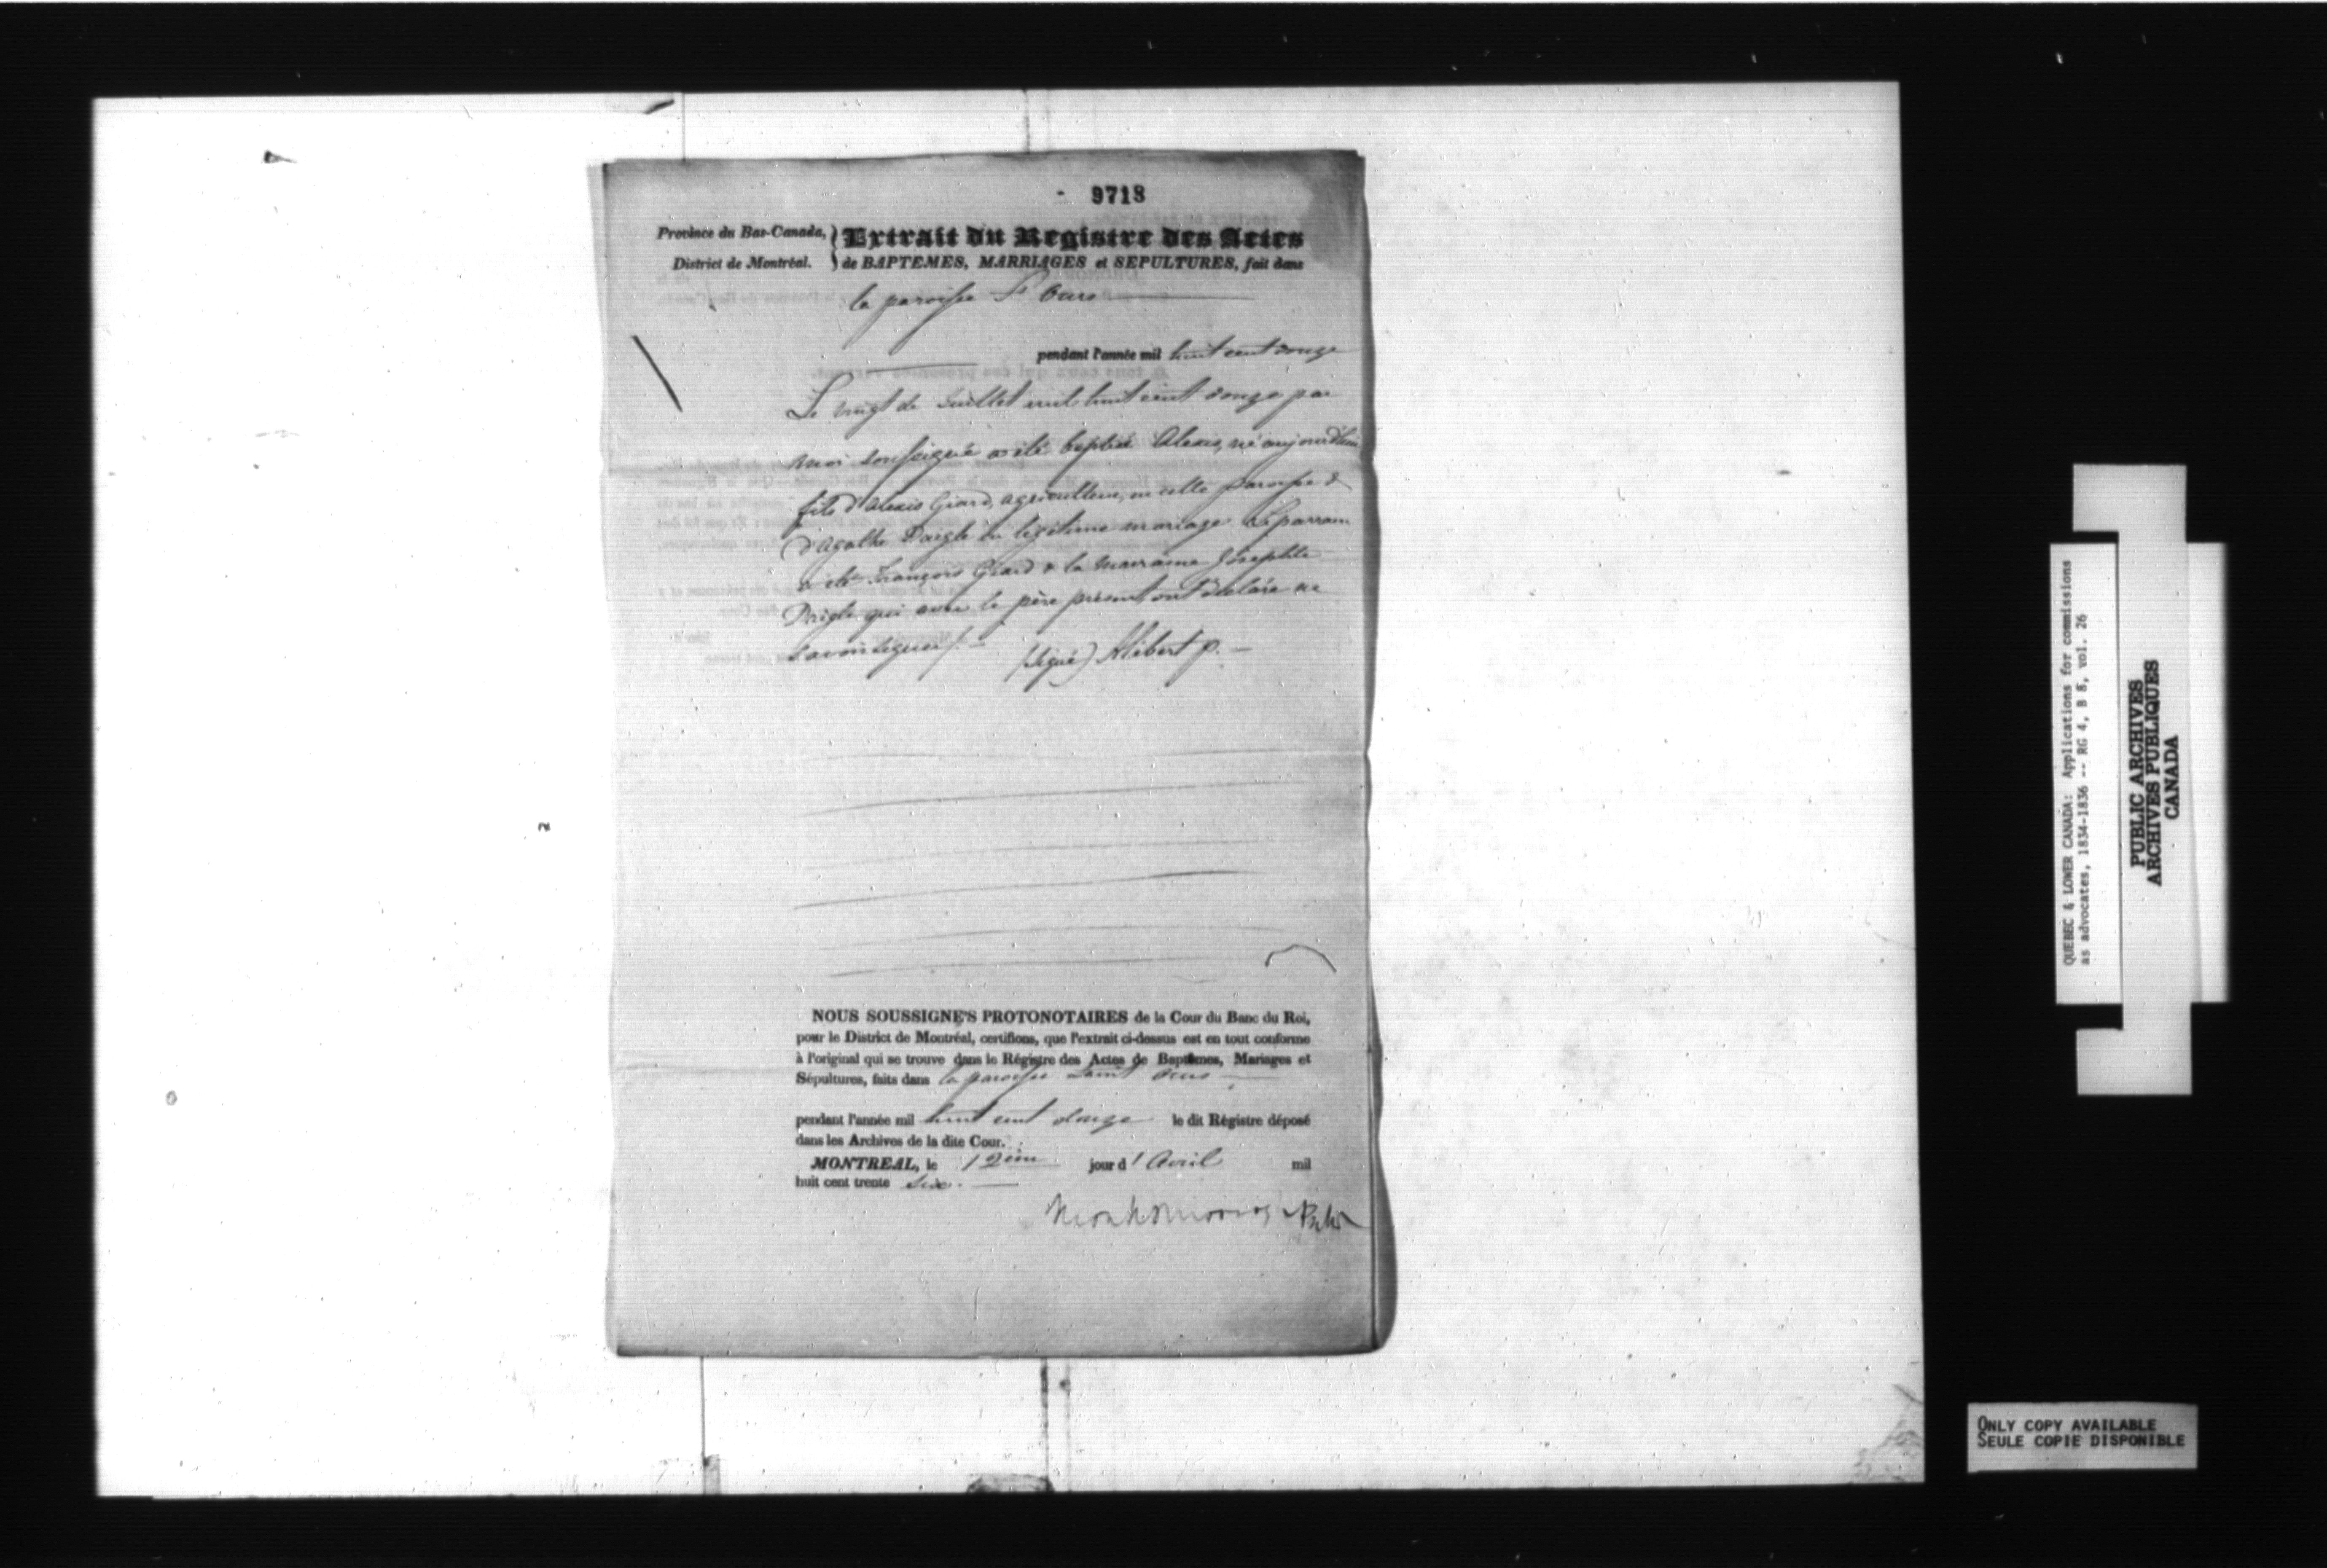 9718
Province du Bas-Canada, District de Montréal.
Extrait du Registre des Actes
de BAPTEMES, MARRIAGES et SEPULTURES, fait dans
la paroisse St Ours
pendant l'année mil huit cent douze
Le vingt de Juillet mil huit cent douze par
moi soussigné a été baptisé Alexis, né aujourd'hui
fils d'Alexis Giard, agriculteur, en cette paroisse &
d'Agathe Daigle en légitime mariage. Le parrain
a été François Giard & la marraine Josephte
Daigle qui avec le père présent ont déclaré ne
savoir signer/. —
(Signé) Hébert p. —
NOUS SOUSSIGNE'S PROTONOTAIRES de la Cour du Banc du Roi,
pour le District de Montréal, certifions, que l'extrait ci-dessus est en tout conforme
à l'original qui se trouve dans le Régistre des Actes de Baptêmes, Mariages et
Sépultures, faits dans la paroisse Saint Ours
pendant l'année mil huit cent douze le dit Régistre déposé
dans les Archives de la dite Cour.
MONTREAL, le 12ème jour d'Avril mil
huit cent trente six. —
Monk & Morrogh
QUEBEC & LOWER CANADA: Applications for commissions
as advocates, 1834-1836 -- RG 4, B 8, vol. 26
PUBLIC ARCHIVES
ARCHIVES PUBLIQUES
CANADA
ONLY COPY AVAILABLE
SEULE COPIE DISPONIBLE